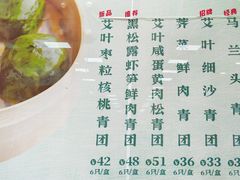 新品
艾叶枣粒核桃青团
42
6只/盒
推荐
黑松露虾笋鲜青团
48
6只/盒
艾叶咸蛋黄肉松青团
51
6只/盒
荠菜鲜肉青团
36
6只/盒
招牌
艾叶细沙青团
33
6只/盒
经典
马兰头青团